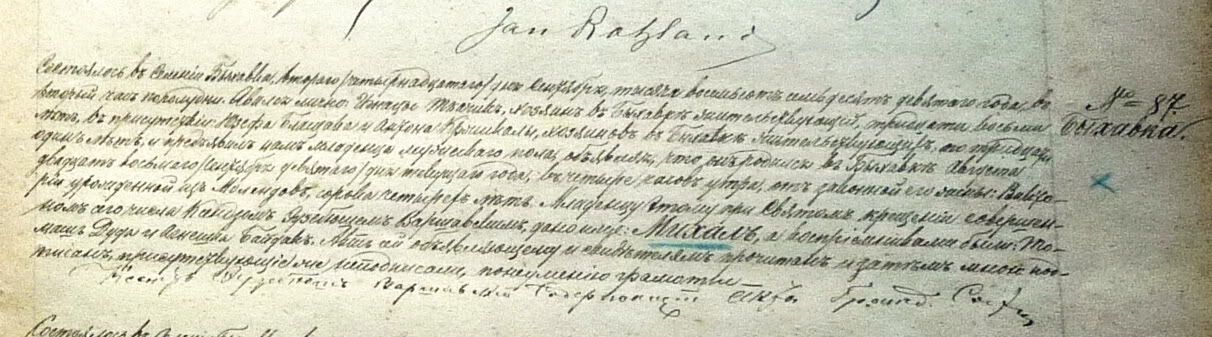 Jan Rotzland
Состоялось въ селеніи Быхавка, втораго /четырнадцатаго/ дня Сентября, тысяча восемьсотъ семьдесятъ девятаго года, во
второй часъ пополудни. Явился лично: Игнатъ хозяинъ въ Быхавкѣ жительствующій, тридцати восьми
лѣтъ, въ присутствіи Юзефа и Антона хозяиновъ въ Быхавкѣ жительствующихъ, по тридцати
одинъ лѣтъ, и предъявилъ намъ младенца мужескаго пола, объявляя, что онъ родился въ Быхавкѣ Августа
двадцать восьмаго /Сентября девятаго/ дня текущаго года, въ четыре часовъ утра, отъ законной его жены
урожденной изъ сорока четырехъ лѣтъ. Младенцу этому при Святомъ крещеніи совершен-
номъ сего числа Ксендзомъ Варшавскимъ, дано имя: Михалъ, а воспріемниками были: То-
машъ Дуда и Агнешка Актъ сей объявляющему и свидѣтелямъ прочитанъ и затѣмъ мною под-
писанъ, присутствующіе не подписали, по неумѣнію грамоты.
Ксендзъ Варшавскій Содержащій Акты Гражд. Сост.
№ 87
Быхавка.
Состоялось въ